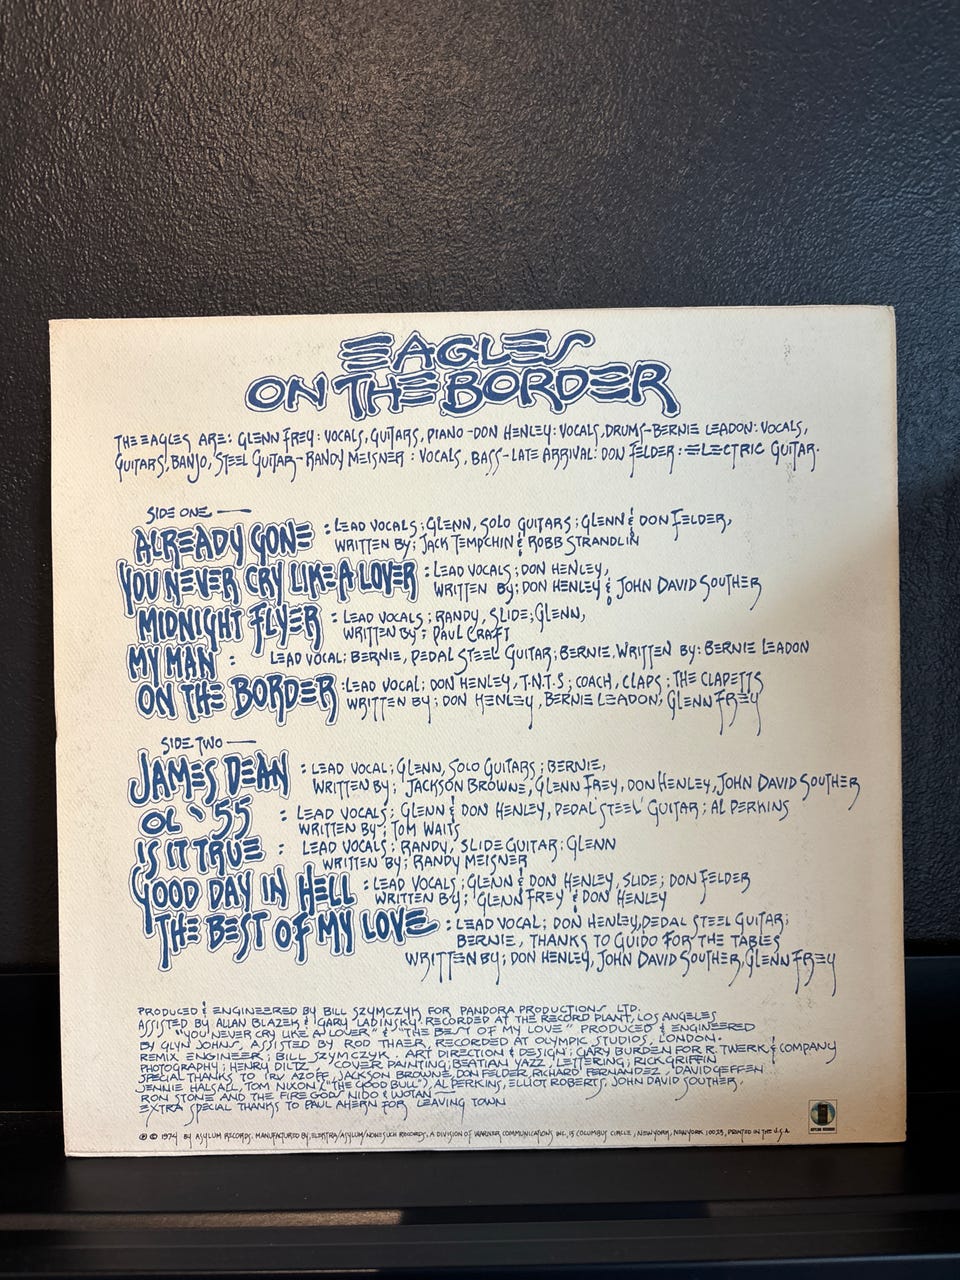 EAGLES
ON THE BORDER
THE EAGLES ARE: GLENN FREY: VOCALS, GUITARS, PIANO - DON HENLEY: VOCALS, DRUMS - BERNIE LEADON: VOCALS,
GUITARS, BANJO, STEEL GUITAR - RANDY MEISNER: VOCALS, BASS - LATE ARRIVAL: DON FELDER: ELECTRIC GUITAR.
SIDE ONE —
ALREADY GONE : LEAD VOCALS; GLENN, SOLO GUITARS; GLENN & DON FELDER,
WRITTEN BY; JACK TEMPCHIN & ROBB STRANDLIN
YOU NEVER CRY LIKE A LOVER : LEAD VOCALS; DON HENLEY,
WRITTEN BY; DON HENLEY & JOHN DAVID SOUTHER
MIDNIGHT FLYER : LEAD VOCALS; RANDY, SLIDE; GLENN,
WRITTEN BY; PAUL CRAFT
MY MAN : LEAD VOCAL; BERNIE, PEDAL STEEL GUITAR; BERNIE, WRITTEN BY: BERNIE LEADON
ON THE BORDER : LEAD VOCAL; DON HENLEY, T.N.T.S; COACH, CLAPS; THE CLAPETTS
WRITTEN BY; DON HENLEY, BERNIE LEADON, GLENN FREY
SIDE TWO —
JAMES DEAN : LEAD VOCAL; GLENN, SOLO GUITARS; BERNIE,
WRITTEN BY; JACKSON BROWNE, GLENN FREY, DON HENLEY, JOHN DAVID SOUTHER
OL '55 : LEAD VOCALS; GLENN & DON HENLEY, PEDAL STEEL GUITAR; AL PERKINS
WRITTEN BY; TOM WAITS
IS IT TRUE : LEAD VOCALS; RANDY, SLIDE GUITAR; GLENN
WRITTEN BY; RANDY MEISNER
GOOD DAY IN HELL : LEAD VOCALS; GLENN & DON HENLEY, SLIDE; DON FELDER
WRITTEN BY; GLENN FREY & DON HENLEY
THE BEST OF MY LOVE : LEAD VOCAL; DON HENLEY, PEDAL STEEL GUITAR;
BERNIE, THANKS TO GUIDO FOR THE TABLES
WRITTEN BY; DON HENLEY, JOHN DAVID SOUTHER, GLENN FREY
PRODUCED & ENGINEERED BY BILL SZYMCZYK FOR PANDORA PRODUCTIONS LTD.
ASSISTED BY ALLAN BLAZEK & GARY LADINSKY. RECORDED AT THE RECORD PLANT, LOS ANGELES
"YOU NEVER CRY LIKE A LOVER" & "THE BEST OF MY LOVE" PRODUCED & ENGINEERED
BY GLYN JOHNS, ASSISTED BY ROD THAER, RECORDED AT OLYMPIC STUDIOS, LONDON.
REMIX ENGINEER; BILL SZYMCZYK. ART DIRECTION & DESIGN; GARY BURDEN FOR R. TWERK & COMPANY
PHOTOGRAPHY; HENRY DILTZ, COVER PAINTING; BEATIAN YAZZ, LETTERING; RICK GRIFFIN
SPECIAL THANKS TO IRV AZOFF, JACKSON BROWNE, DON FELDER, RICHARD FERNANDEZ, DAVID GEFFEN
JENNIE HALSALL, TOM NIXON ("THE GOOD BULL"), AL PERKINS, ELLIOT ROBERTS, JOHN DAVID SOUTHER,
RON STONE AND THE FIRE GODS NIDO & WOTAN
EXTRA SPECIAL THANKS TO PAUL AHERN FOR LEAVING TOWN
℗ © 1974 BY ASYLUM RECORDS. MANUFACTURED BY ELEKTRA/ASYLUM/NONESUCH RECORDS, A DIVISION OF WARNER COMMUNICATIONS INC, 15 COLUMBUS CIRCLE, NEW YORK, NEW YORK 10023, PRINTED IN THE U.S.A.
ASYLUM RECORDS